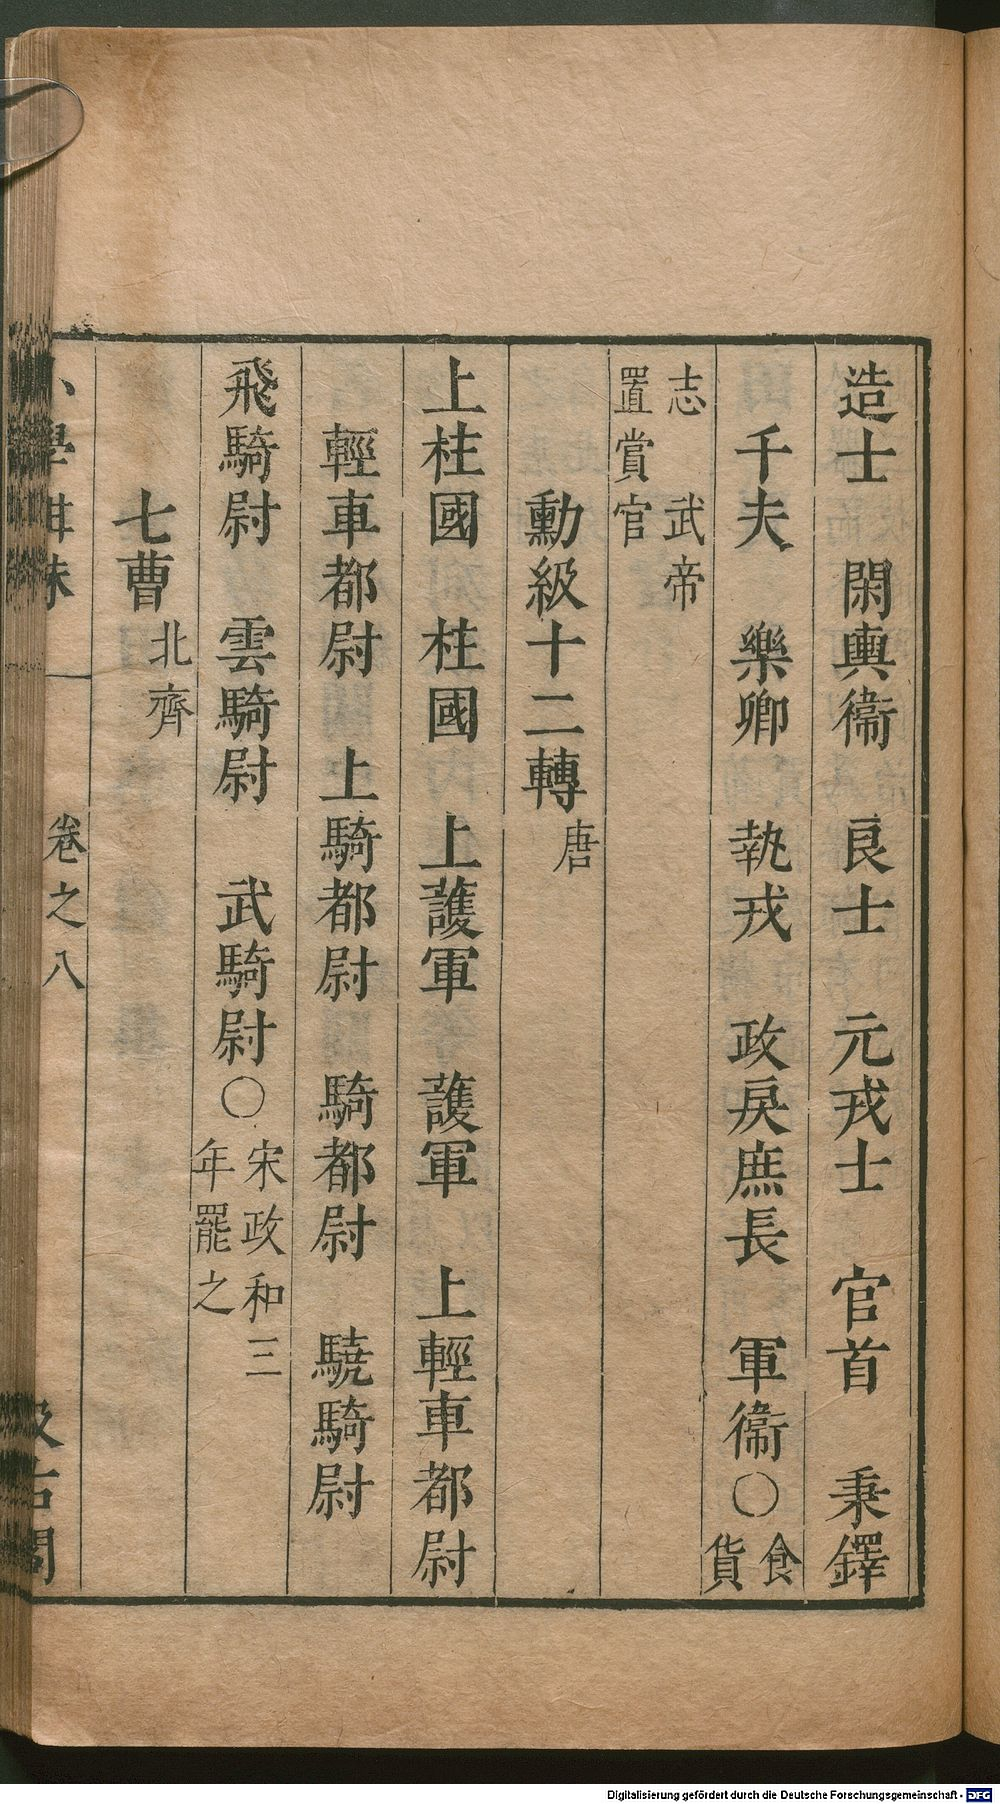 造士　閑輿衞　良士　元戎士　官首　秉鐸
千夫　樂卿　執戎　政戾庶長　軍衞○食貨
志　武帝
置賞官
勳級十二轉唐
上柱國　柱國　上護軍　護軍　上輕車都尉
輕車都尉　上騎都尉　騎都尉　驍騎尉
飛騎尉　雲騎尉　武騎尉○宋政和三
年罷之
七曹北齊
小學紺珠　卷之八　汲古閣
Digitalisierung gefördert durch die Deutsche Forschungsgemeinschaft - DFG